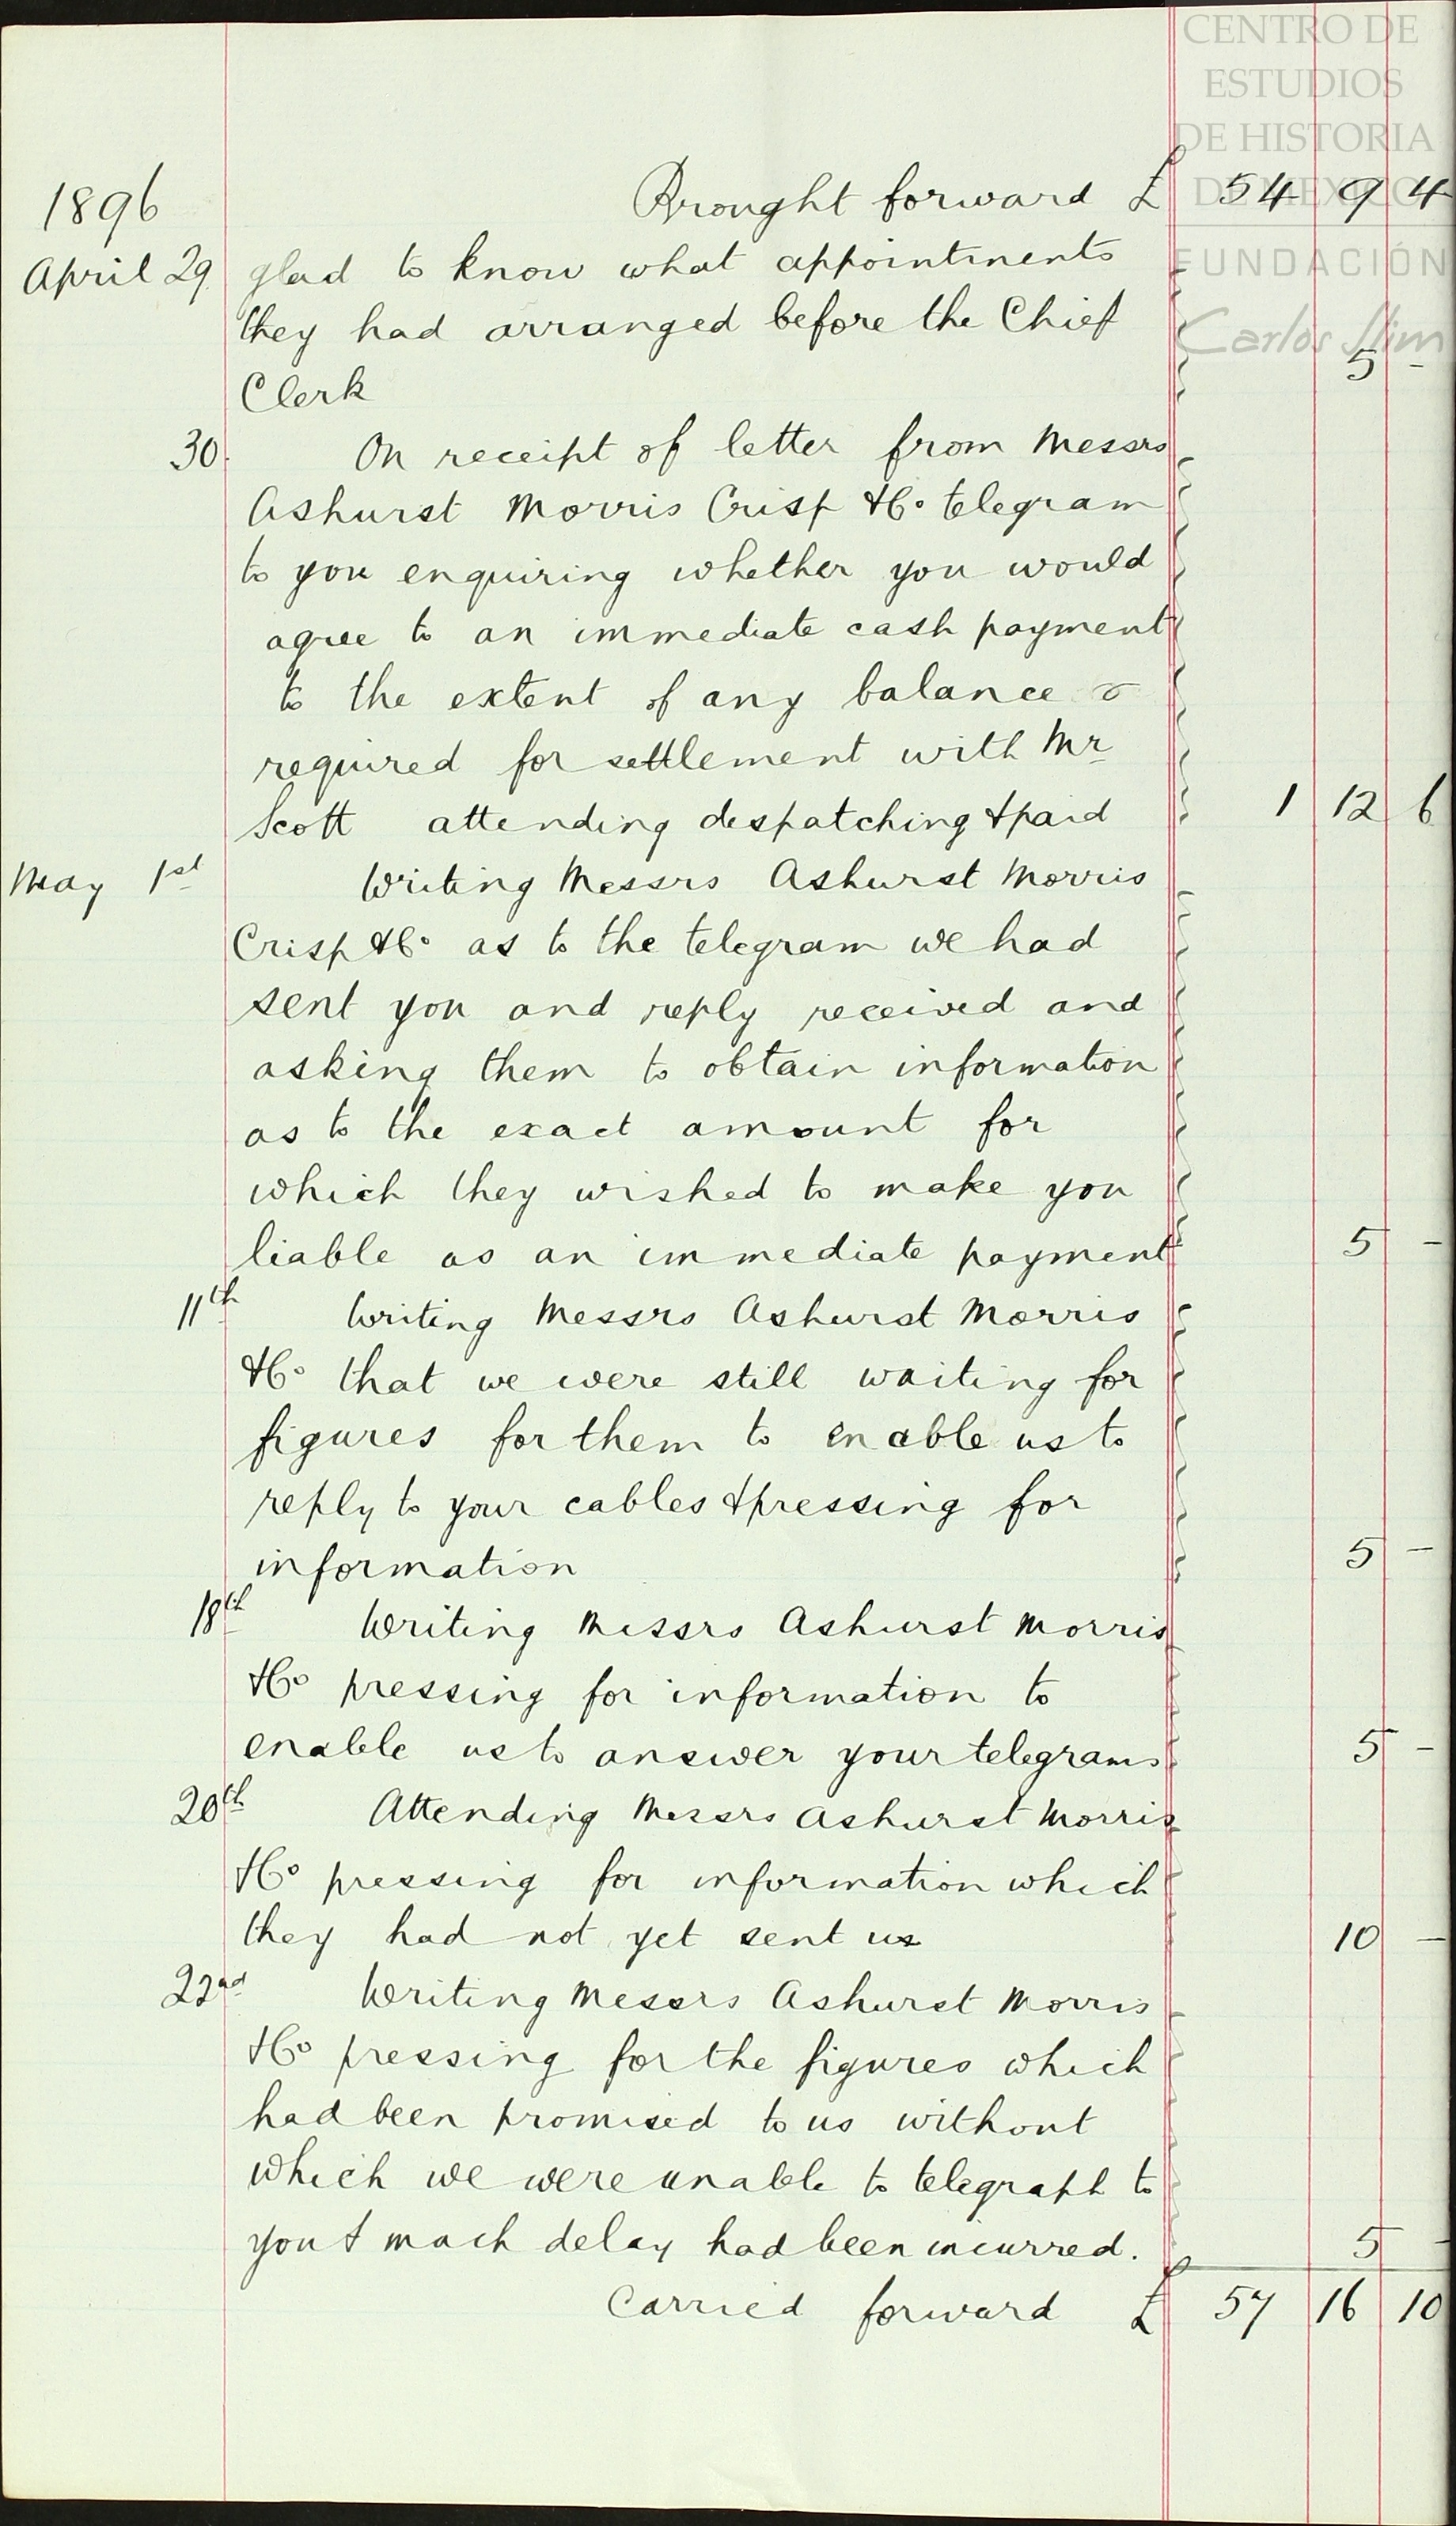 CENTRO DE
ESTUDIOS
DE HISTORIA
DE MEXICO
FUNDACIÓN
Carlos Slim
1896 Brought forward £ 54 9 4
April 29 glad to know what appointments
they had arranged before the Chief
Clerk 5 -
30. On receipt of letter from Messrs
Ashurst Morris Crisp &Co telegram
to you enquiring whether you would
agree to an immediate cash payment
to the extent of any balance
required for settlement with Mr
Scott attending despatching & paid 1 12 6
May 1st Writing Messrs Ashurst Morris
Crisp &Co as to the telegram we had
sent you and reply received and
asking them to obtain information
as to the exact amount for
which they wished to make you
liable as an immediate payment 5 -
11th Writing Messrs Ashurst Morris
&Co that we were still waiting for
figures for them to enable us to
reply to your cables & pressing for
information 5 -
18th Writing Messrs Ashurst Morris
&Co pressing for information to
enable us to answer your telegrams 5 -
20th Attending Messrs Ashurst Morris
&Co pressing for information which
they had not yet sent us 10 -
22nd Writing Messrs Ashurst Morris
&Co pressing for the figures which
had been promised to us without
which we were unable to telegraph to
you & much delay had been incurred. 5 -
Carried forward £ 57 16 10